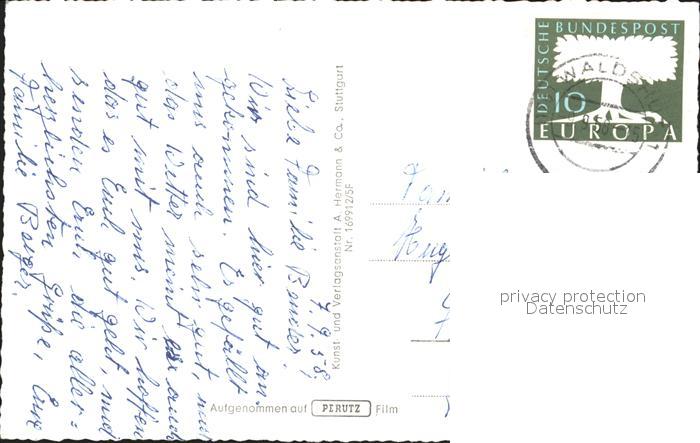 7. 9. 58.
Liebe Familie
Wir sind hier gut an-
gekommen. Es gefällt
uns auch sehr gut, nur
das Wetter meint auch
gut mit uns. Wir hoffen
das es Euch gut geht, und
senden Euch, die aller=
herzlichsten Grüße, Eure
Familie Berger.
Kunst- und Verlagsanstalt A. Hermann & Co., Stuttgart
Nr. 169912/5F
Aufgenommen auf PERUTZ Film
DEUTSCHE BUNDESPOST
10
EUROPA
WALDSHU
Fam
Hug
privacy protection
Datenschutz